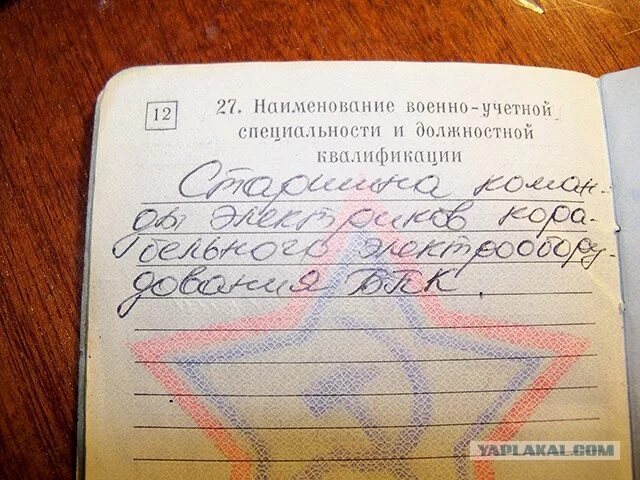 12
27. Наименование военно-учетной
специальности и должностной
квалификации
Старшина коман-
ды электриков кора-
бельного электрообору-
дования БПК.
YAPLAKAL.COM